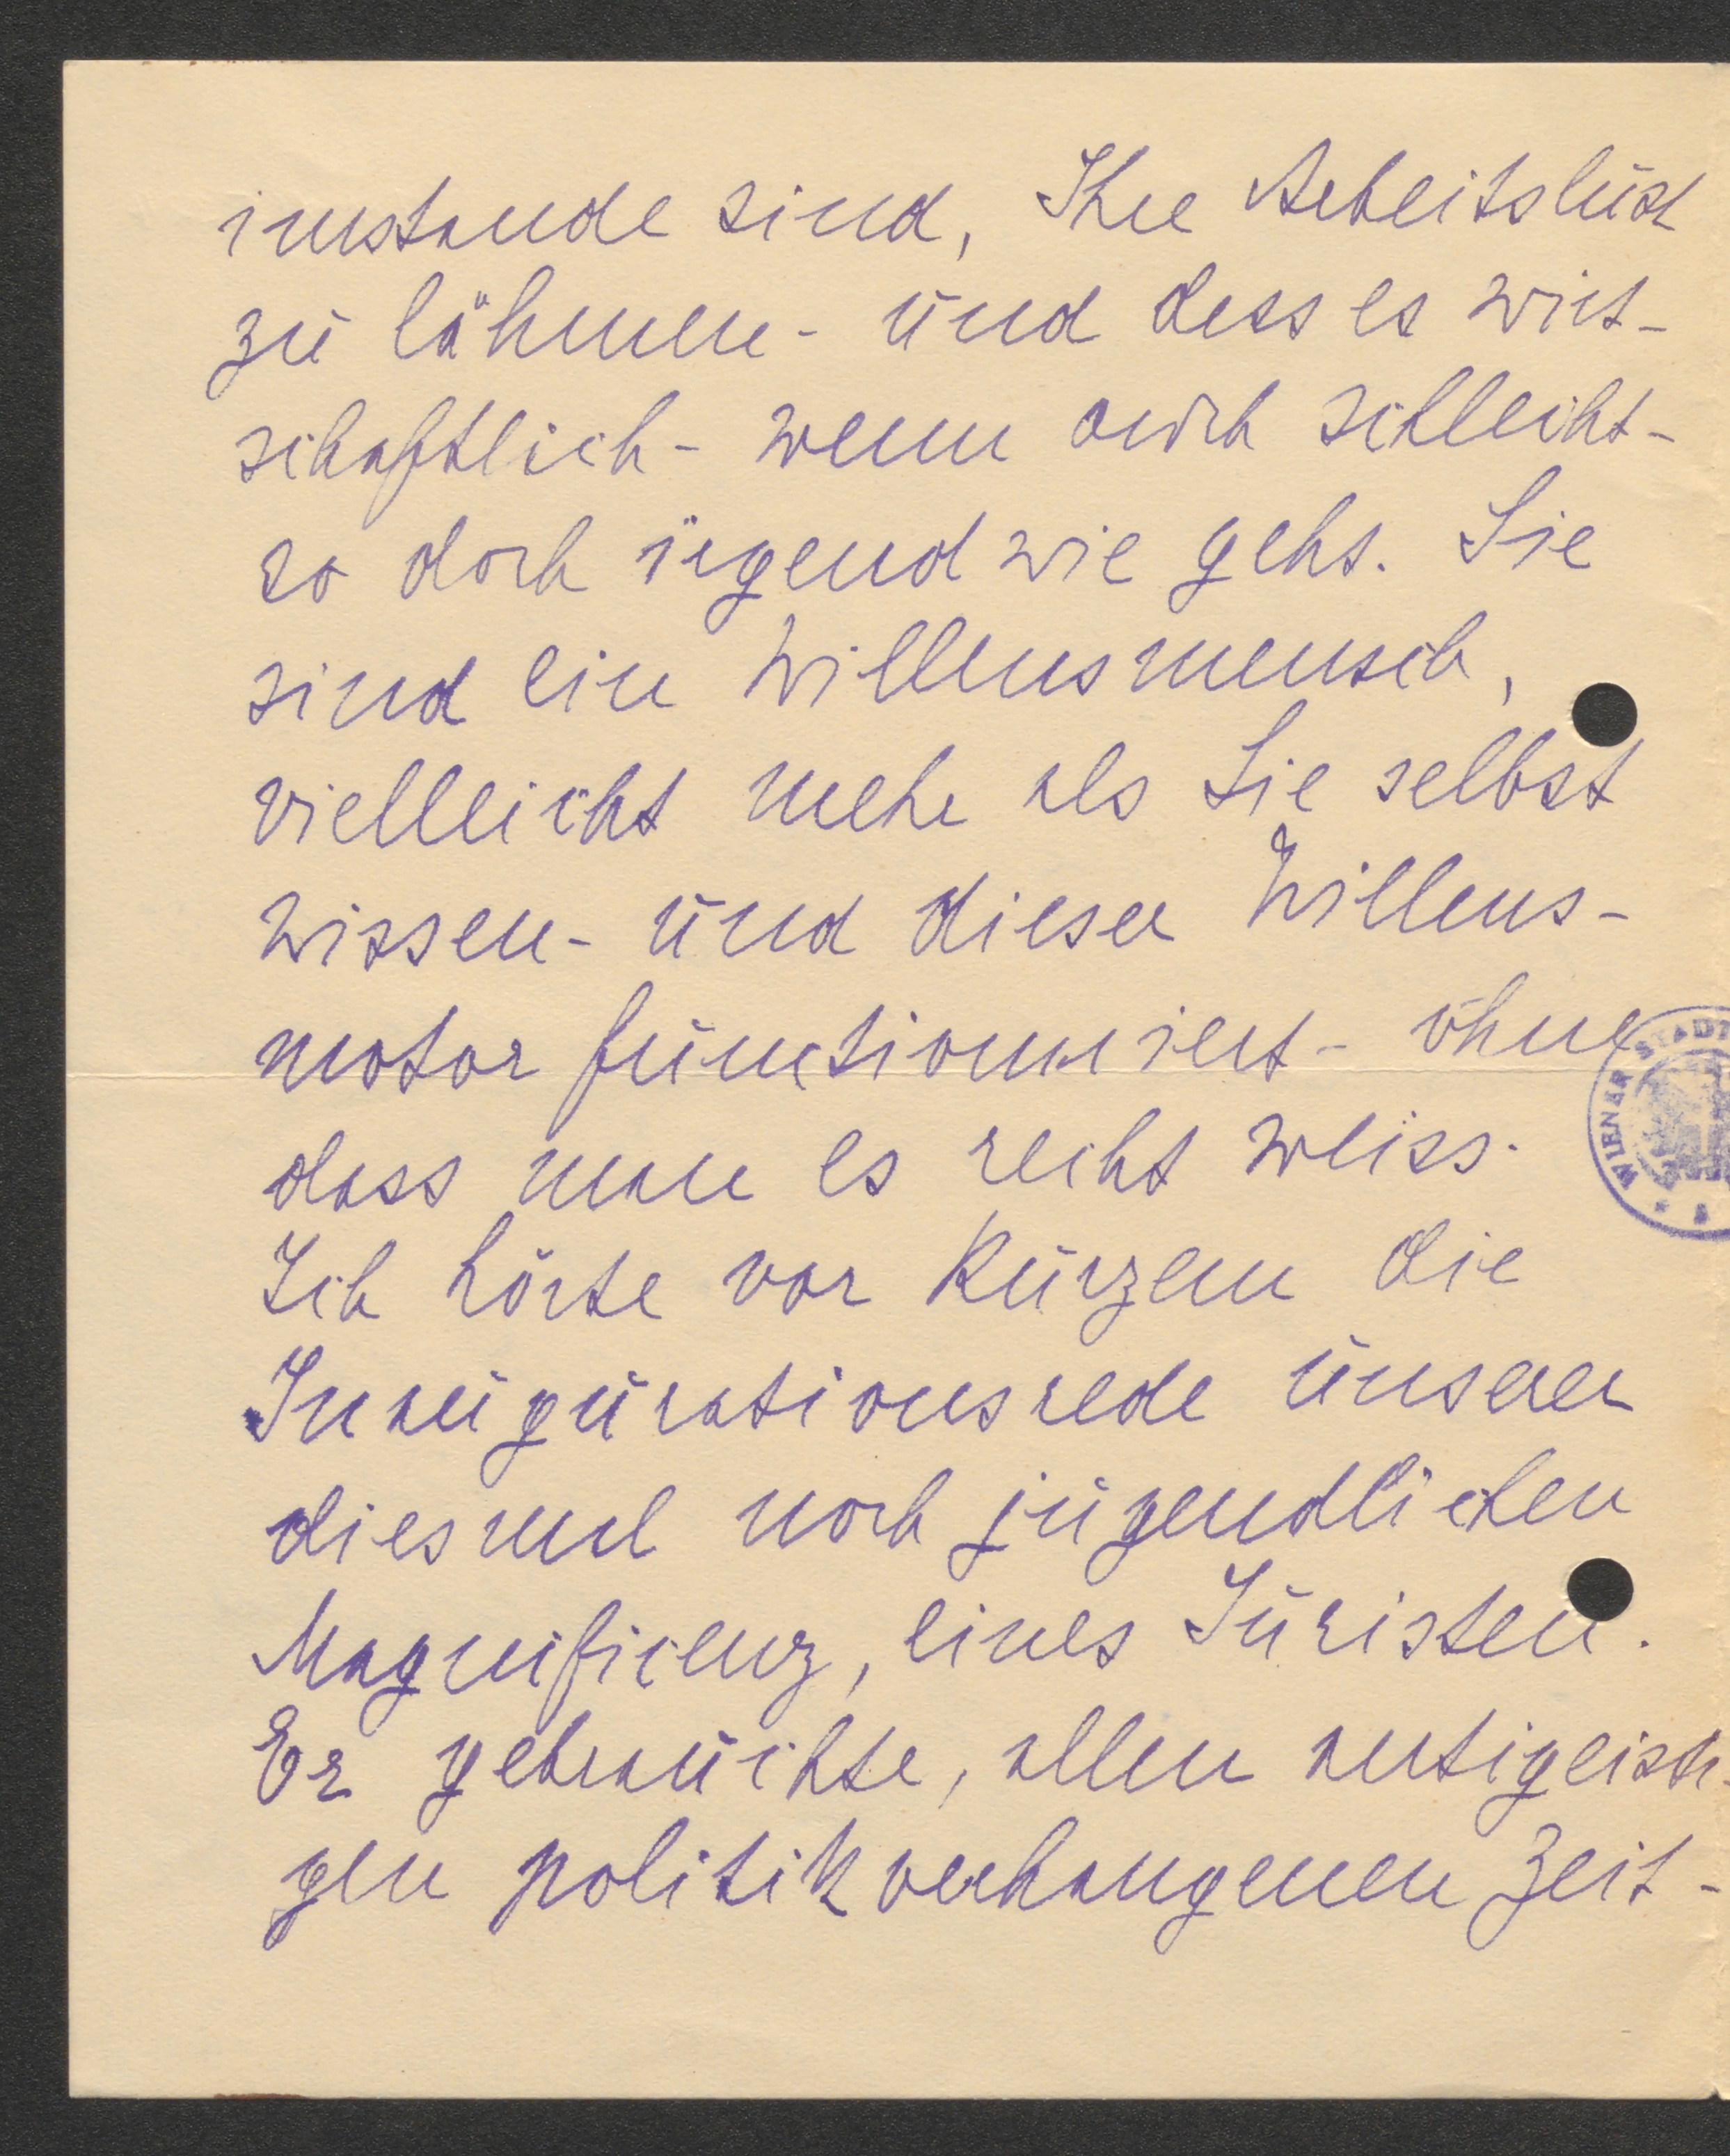 imstande sind, Ihre Arbeitslust
zu lähmen - und dass es wirt-
schaftlich - wenn auch schlecht -
so doch irgend wie geht. Sie
sind ein Willensmensch,
vielleicht mehr als Sie selbst
wissen - und dieser Willens-
motor functionniert - ohne
dass man es recht weiss.
Ich hörte vor Kurzem die
Inaugurationsrede unserer
diesmal noch jugendlichen
Magnificenz, eines Juristen.
Er gebrauchte, allen antigeisti-
gen politikverhangenen Zeit-
WIENER STADT